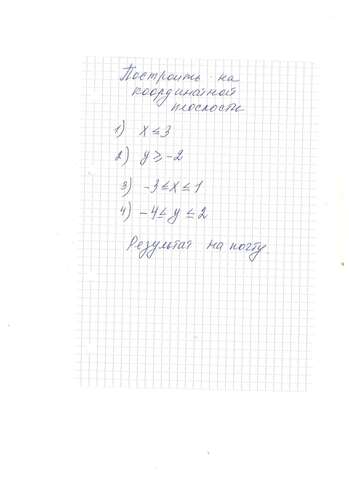 Построить на
координатной
плоскости
1) x ≤ 3
2) y ≥ -2
3) -3 ≤ x ≤ 1
4) -4 ≤ y ≤ 2
Результат на почту.